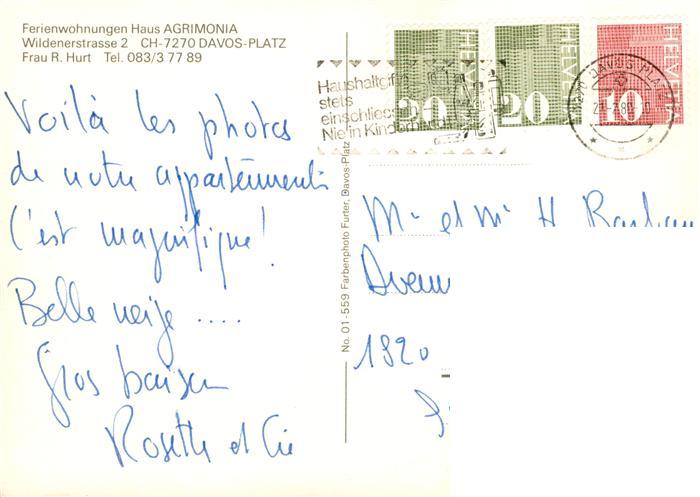 Ferienwohnungen Haus AGRIMONIA
Wildenerstrasse 2 CH-7270 DAVOS-PLATZ
Frau R. Hurt Tel. 083/3 77 89
Voilà les photos
de notre appartement
C'est magnifique!
Belle neige ....
Gros baisers
Rosette et Cie
No. 01-559 Farbenphoto Furter, Davos-Platz
Haushaltgifte
stets
einschliessen
Nie in Kinderhand
HELVETIA 20
HELVETIA 20
HELVETIA 10
DAVOS-PLATZ
Mr et Me H.
1920